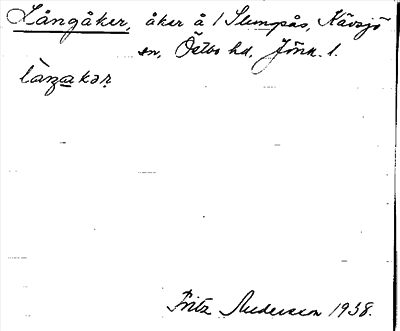 Långåker, åker å 1 Slumpås, Kävsjö
sn, Östbo hd, Jönk. l.
làŋakər
Fritz Anderson 1938.